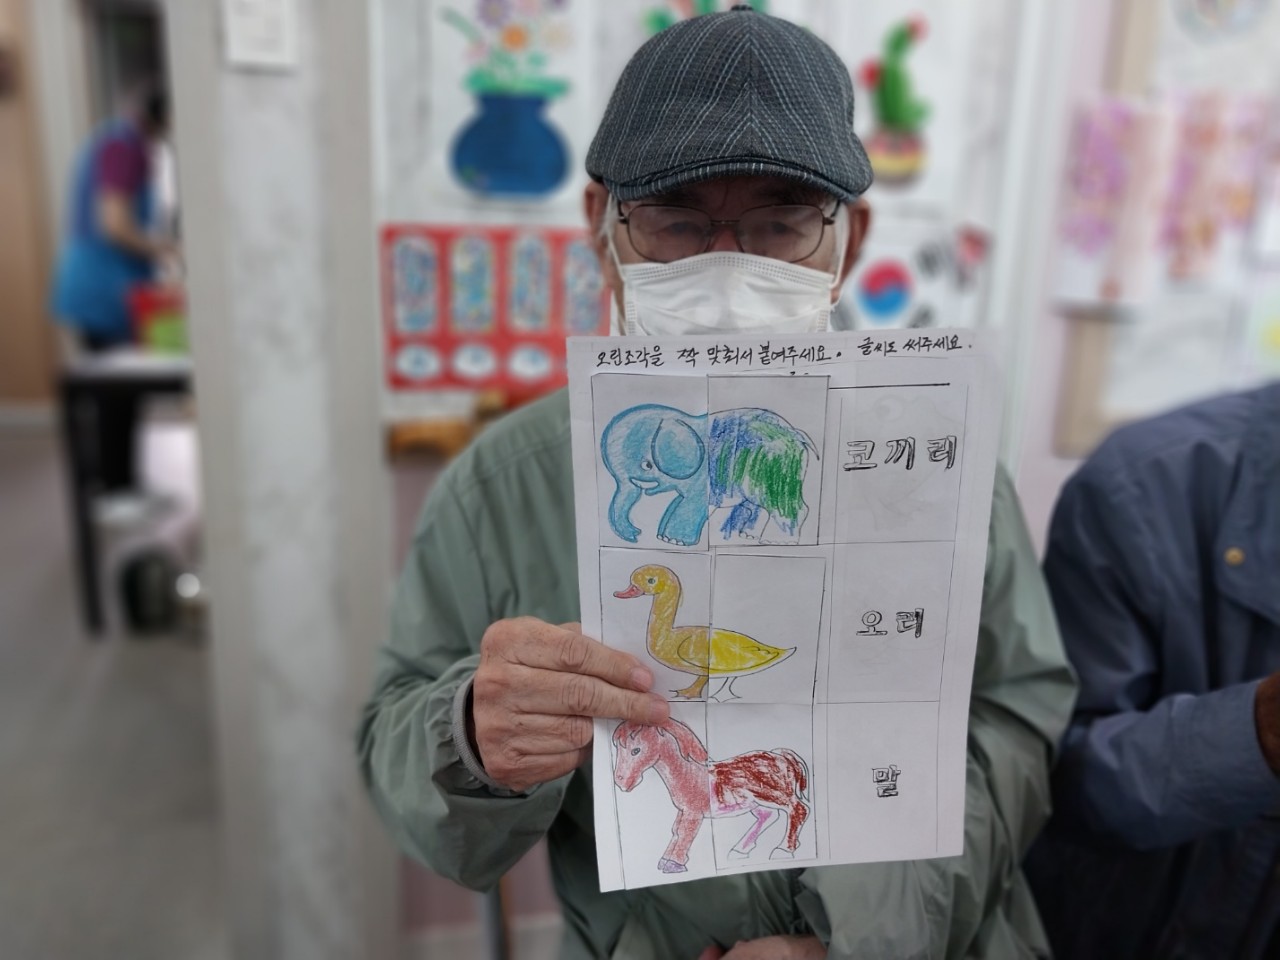 오린조각을 짝 맞춰서 붙여주세요. 글씨도 써주세요.
코끼리
오리
말